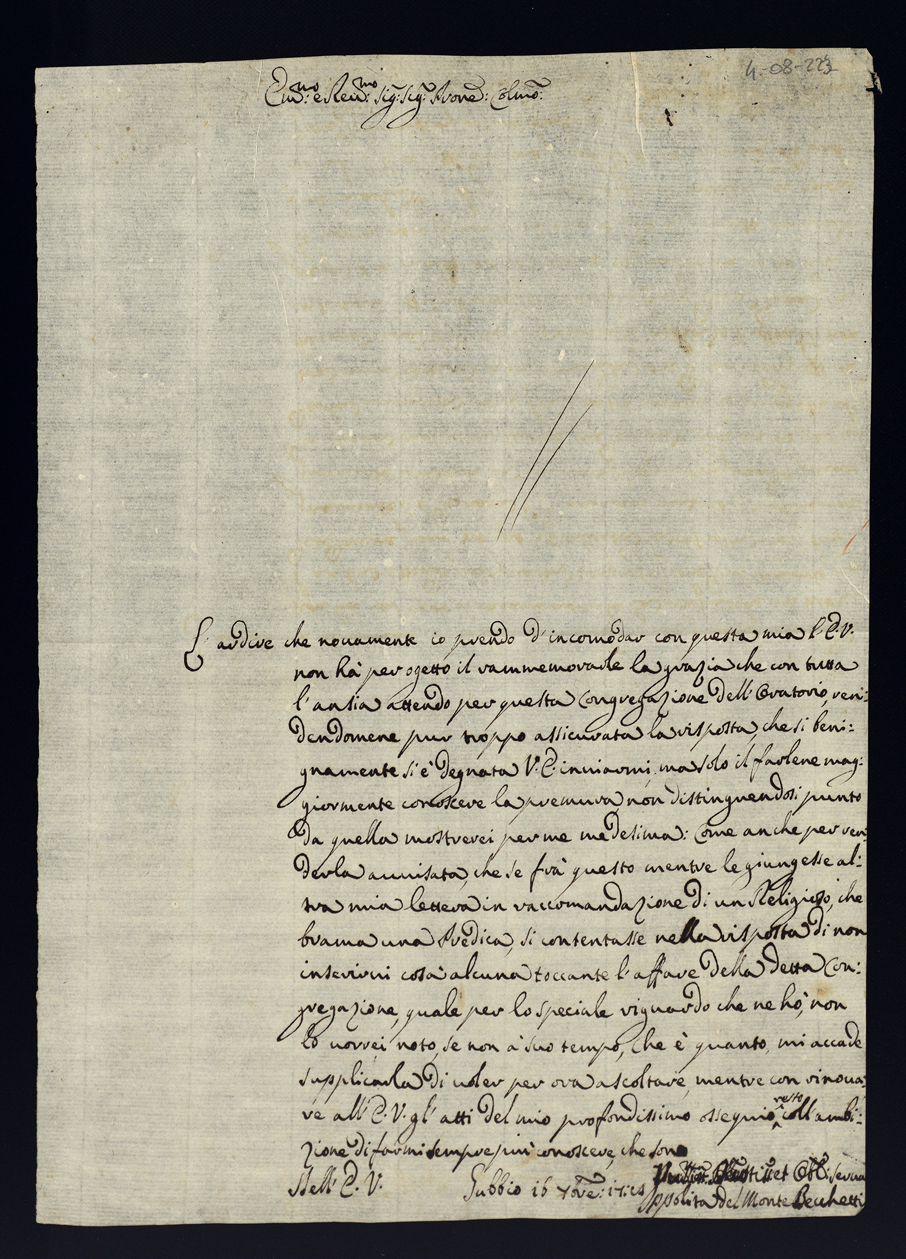 4-08-223
Em:mo e Reu:mo Sig:r Sig:r Prone: Colmo:
L'ardire che nouamente io prendo d'incomodar con questa mia l'E.V.
non hà per ogetto il rammemorarle la grazia che con tutta
l'ansia attendo per questa Congregazione dell'Oratorio, ren:
dendomene pur troppo assicurata la risposta, che si beni:
gnamente si è degnata V.E. inuiarmi, ma solo il farlene mag:
giormente conoscere la premura non distinguendosi punto
da quella mostrerei per me medesima: Come anche per ren
derla auuisata, che se frà questo mentre le giungesse al:
tra mia lettera in raccomandazione di un Religioso, che
brama una Predica, si contentasse nella risposta di non
inserirui cosa alcuna toccante l'affare della detta Con:
gregazione, quale per lo speciale riguardo che ne hò, non
lo uorrei noto, se non à suo tempo, che è quanto mi accade
supplicarla di uoler per ora ascoltare, mentre con rinoua:
re all'E.V. gl'atti del mio profondissimo ossequio resto coll'ambi:
zione di farmi sempre più conoscere, che sono
Dell'E.V. Gubbio 16 9bre: 1724 et Obl: Serua
Ippolita del Monte Becchetti